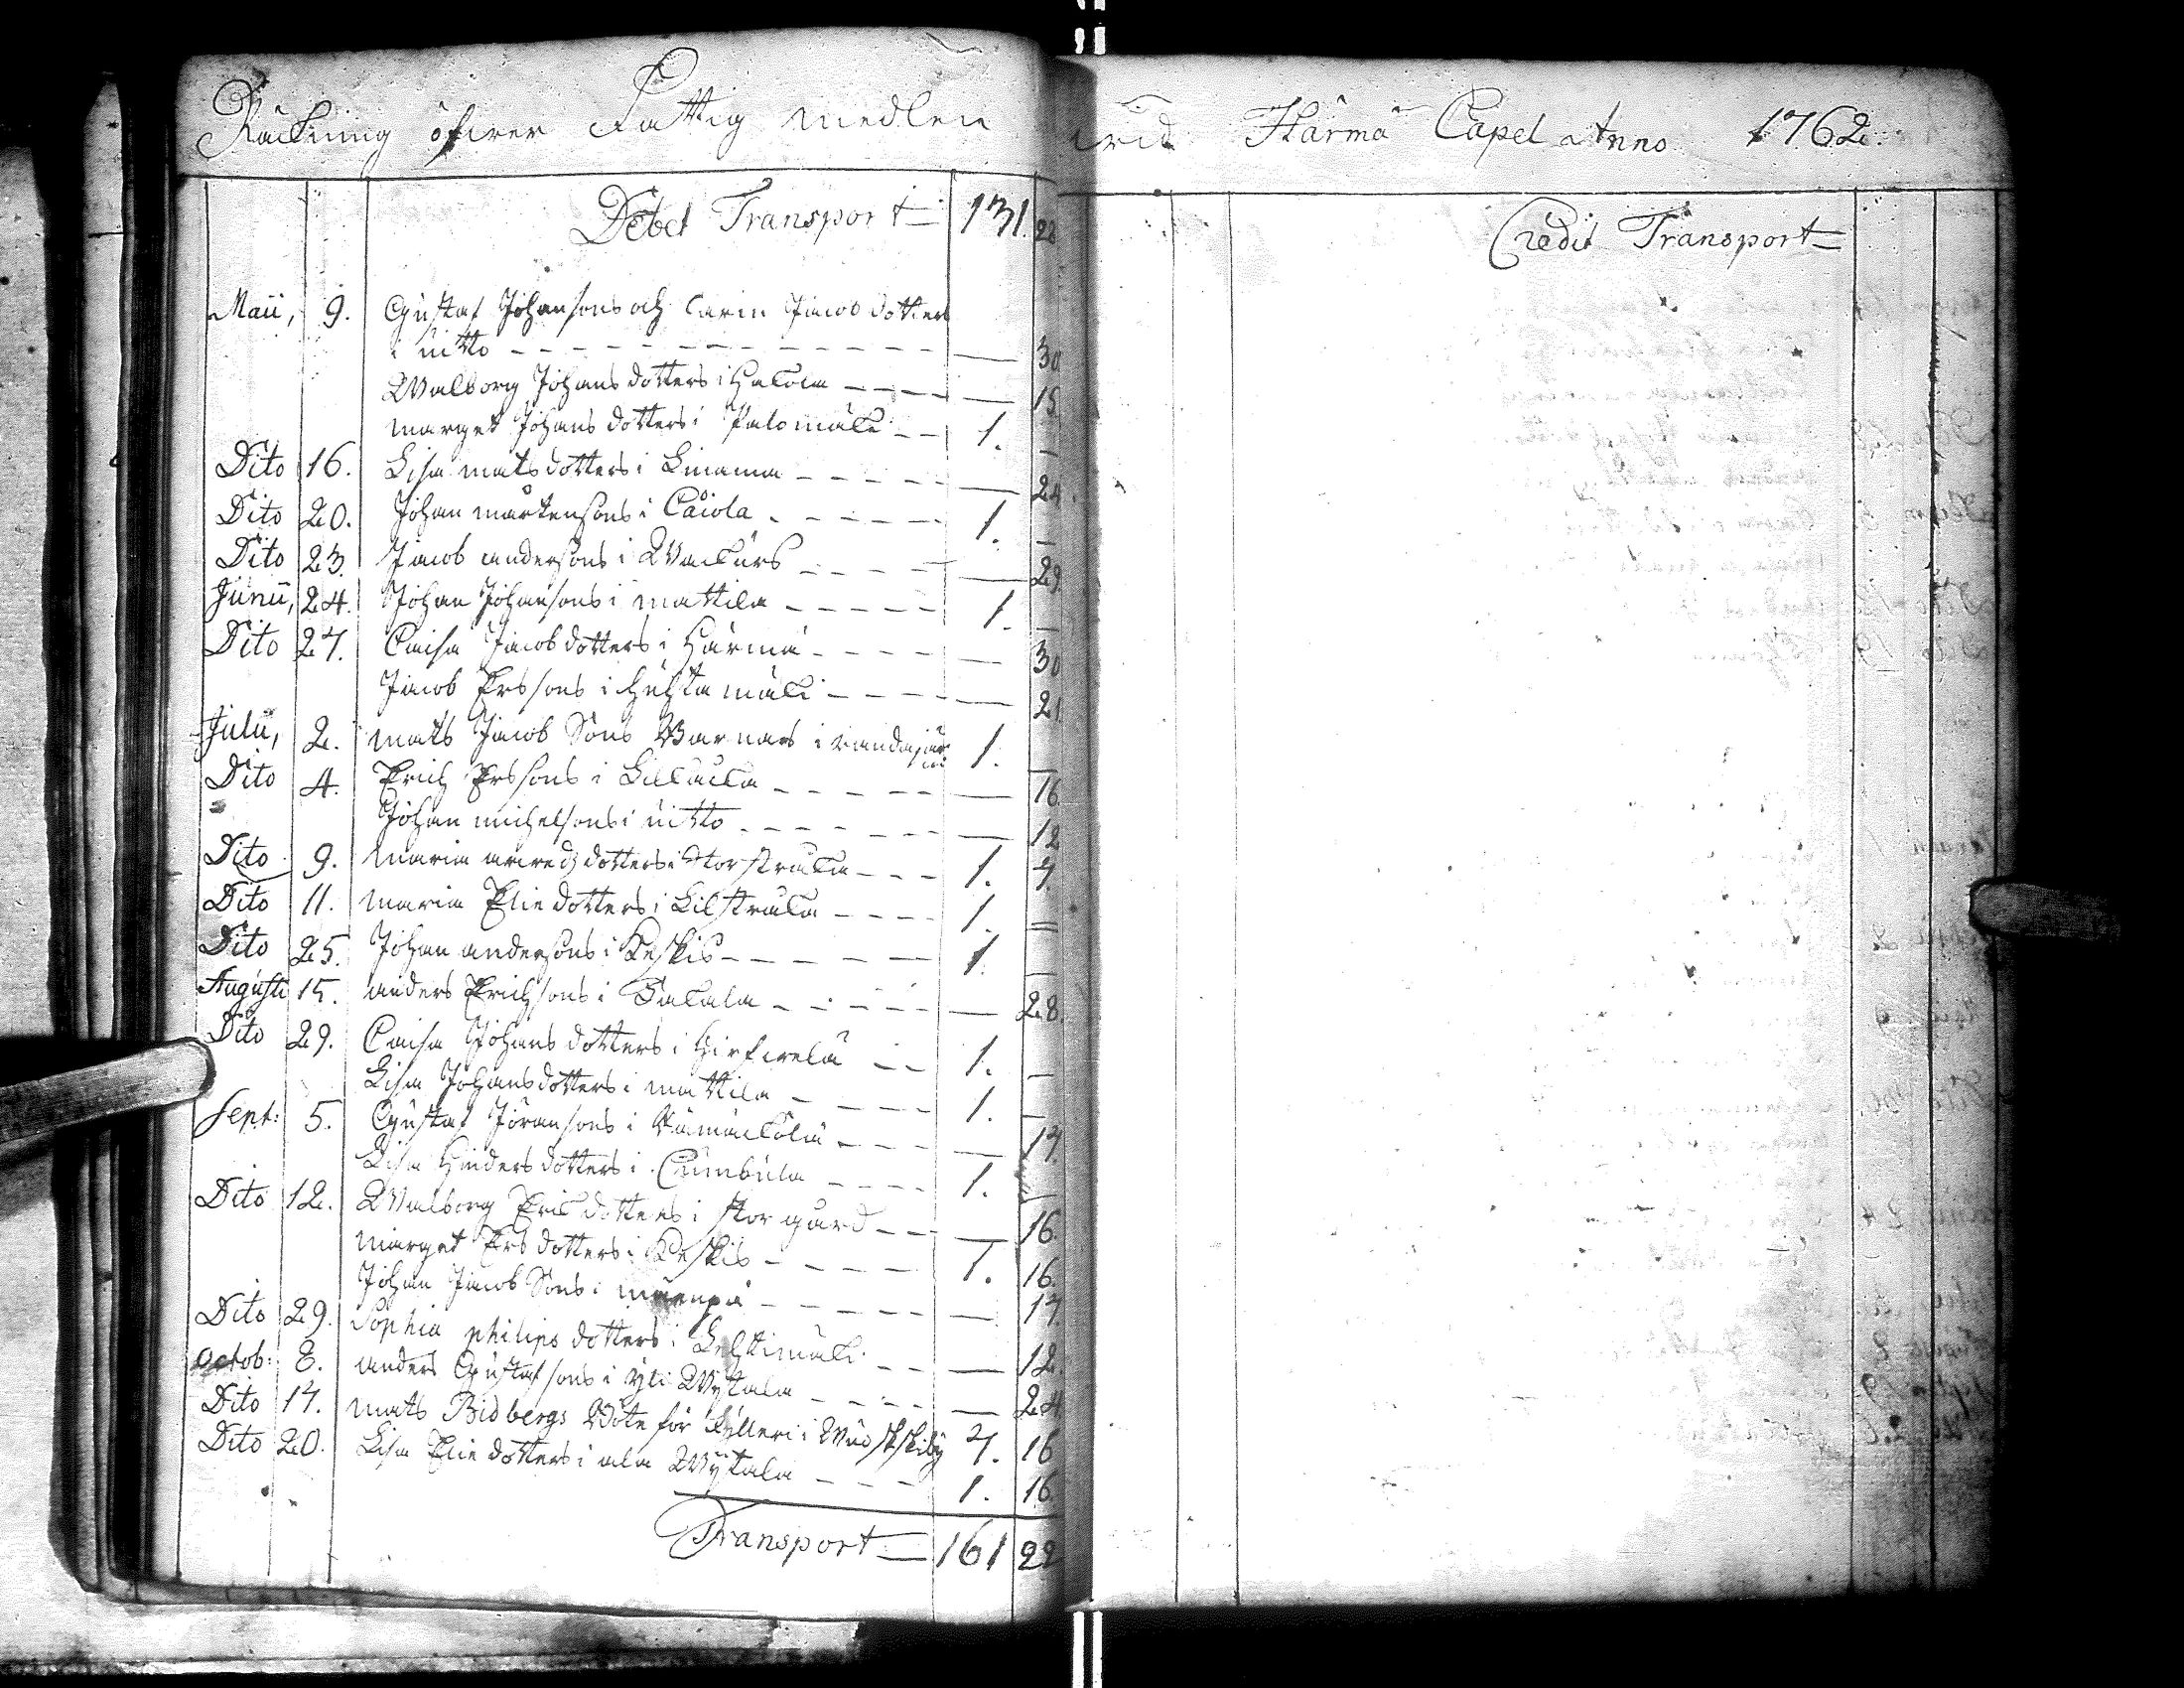 Räkning öfwer Fattig medlen wid Härmä Capel Anno 1762.
Debet Transport 131. 22
Maii, 9. Gustaf Johansons och Carin Jacobsdotters
i uitto 30
Walborg Johansdotters i Hakola 15
marget Johansdotters i Palomäki 1. —
Dito 16. Lisa matsdotters i Linama 24
Dito 20. Johan mårtensons i Caiola 1. —
Dito 23. Jacob andersons i 29
Junii, 24. Johan Johansons i mattila 1. —
Dito 27. Caisa Jacobsdotters i Härmä 30
Jacob Erssons i Huhtamäki 21
Julii, 2. mats Jacob Sons Barnars i 1. —
Dito 4. Erich Erssons i 16
Johan michelsons i uitto 12
Dito 9. maria dotters i Storstråka 1. 7.
Dito 11. maria Elie dotters i Lilstråka 1. —
Dito 25. Johan andersons i Keskis 1. —
Augusti 15. anders Erichsons i 28.
Dito 29. Caisa Johansdotters i Hirfwelä 1. —
Lisa Johansdotters i mattila 1. —
Sept: 5. Gustaf Jöransons i 17.
Lisa Hindersdotters i Cumbula 1. —
Dito 12. Walborg Ericdotters i storgård 16.
marget Ersdotters i Keskis 1. 16.
Johan Jacob Sons i mäenpä 17.
Dito 29. Sophia philips dotters i Lehtimäki 12.
Octob: 8. anders Gustafsons i yli Wytala 24
Dito 17. mats Bidbergs Böte för fylleri i 7. 16
Dito 20. Lisa Elie dotters i ala Wytala 1. 16.
Transport 161 22
Credit Transport